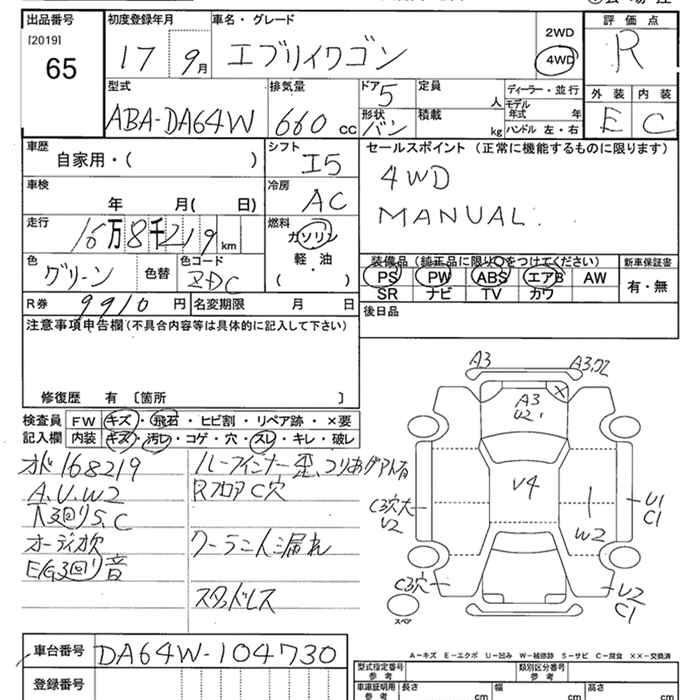 出品番号 初度登録年月 車名・グレード 評価点
[2019]
65 17 9月 エブリイワゴン 2WD 4WD R
型式 排気量 ドア 5 定員 人 ディーラー・並行 外装 内装
ABA-DA64W 660 cc 形状 バン 積載 kg モデル年式 年 ハンドル 左・右 E C
車歴 自家用・( ) シフト I5 セールスポイント (正常に機能するものに限ります)
車検 年 月( 日) 冷房 AC 4WD
走行 16万8千219km 燃料 ガソリン MANUAL.
軽・油 ( )
色 グリーン 色替 色コード ZDC 装備品 (純正品に限り○をつけてください) 新車保証書
PS PW ABS エアB AW 有・無
SR ナビ TV カワ
R券 9910円 名変期限 月 日
後日品
注意事項申告欄 (不具合内容等は具体的に記入して下さい)
修復歴 有 〔箇所 〕
検査員 FW キズ・飛石・ヒビ割・リペア跡・×要
記入欄 内装 キズ・汚レ・コゲ・穴・スレ・キレ・破レ
オド168219
A.U.W2
S.C
オーディオ欠
音
Rフロア C穴
クーラー
スタッドレス
A3
A3
A3
U2
V4
W2
U1
C1
U2
C3穴
U2
C1
スペア
車台番号 DA64W-104730
登録番号
A-キズ E-エクボ U-凹み W-補修跡 S-サビ C-腐食 ××-交換済
型式指定番号 参考 類別区分番号 参考
車庫証明用 参考 長さ cm 幅 cm 高さ cm